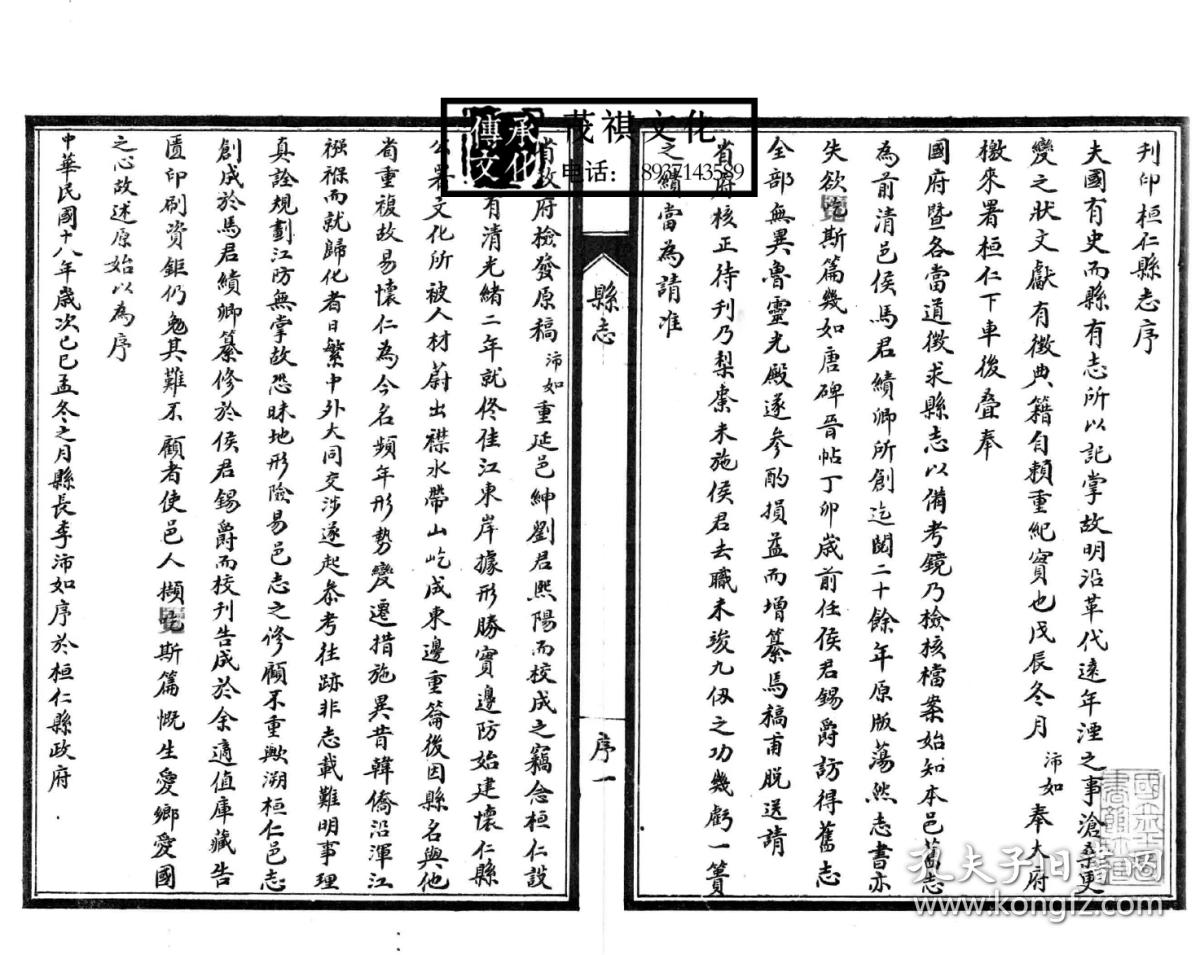 刊印桓仁縣志序
夫國有史而縣有志所以記掌故明沿革代遠年湮之事滄桑更
變之狀文獻有徵典籍自賴重紀實也戊辰冬月沛如奉大府
檄來署桓仁下車後叠奉
國府暨各當道徵求縣志以備考鏡乃檢核檔案始知本邑舊志
為前清邑侯馬君績卿所創迄閱二十餘年原版蕩然志書亦
失欲覓斯篇幾如唐碑晉帖丁卯歲前任侯君錫爵訪得舊志
全部無異魯靈光殿遂參酌損益而增纂馬稿甫脫送請
省府核正待刊乃梨棗未施侯君去職未竣九仞之功幾虧一簣
之續當為請准
省政府檢發原稿沛如重延邑紳劉君熙陽而校成之竊念桓仁設
有清光緒二年就佟佳江東岸據形勝實邊防始建懷仁縣
公署文化所被人材蔚出襟水帶山屹成東邊重籥後因縣名與他
省重複故易懷仁為今名頻年形勢變遷措施異昔韓僑沿渾江
襁褓而就歸化者日繁中外大同交涉遂起叅考往跡非志載難明事理
真詮規劃江防無掌故恐昧地形險易邑志之修顧不重歟溯桓仁邑志
創成於馬君績卿纂修於侯君錫爵而校刊告成於余適值庫藏告
匱印刷資鉅仍勉其難不顧者使邑人擷覽斯篇慨生愛鄉愛國
之心故述原始以為序
中華民國十八年歲次己巳孟冬之月縣長李沛如序於桓仁縣政府
縣志
序一
傳承
文化
茂祺文化
电话：18937143589
孔夫子旧书网
www.kongfz.com